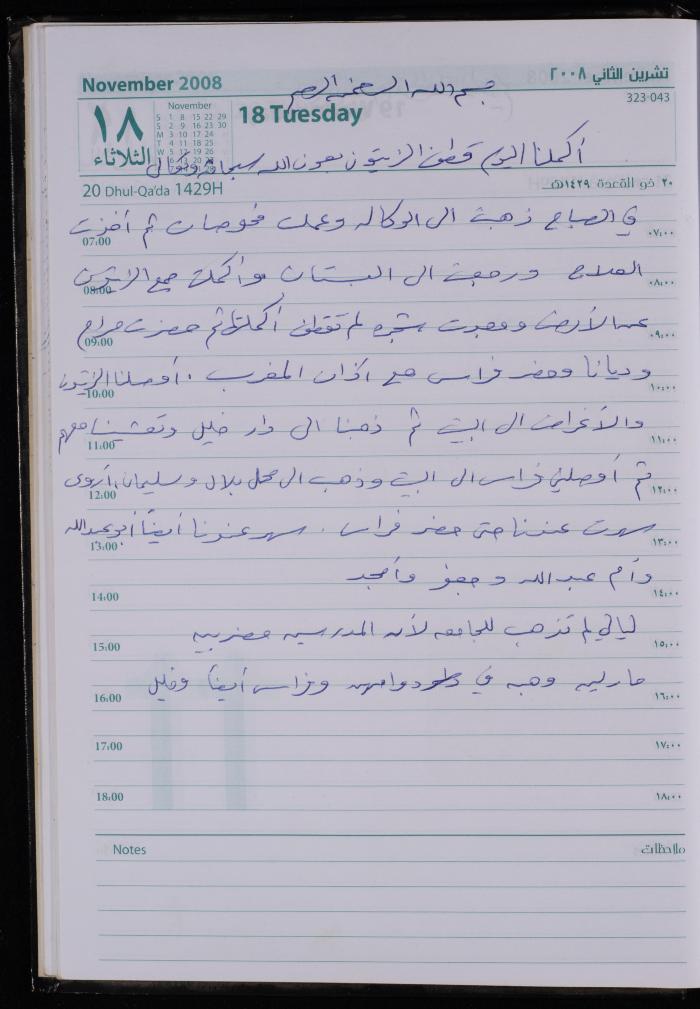 November 2008
تشرين الثاني ٢٠٠٨
بسم الله الرحمن الرحيم
323-043
November
S 1 8 15 22 29
S 2 9 16 23 30
M 3 10 17 24
T 4 11 18 25
W 5 12 19 26
١٨
الثلاثاء
18 Tuesday
أكملنا اليوم قطف الزيتون بعون الله سبحانه وتعالى
20 Dhul-Qa'da 1429H
٢٠ ذو القعدة ١٤٢٩هـ
في الصباح ذهبت الى الوكاله وعملت فحوصات ثم أخذت
07:00 ٠٧:٠٠
العلاج ورجعت الى البستان وأكملت جمع الزيتون
08:00 ٠٨:٠٠
عن الأرض ووجدت شجره لم تقطف أكملتها ثم حضرت مرام
09:00 ٠٩:٠٠
وديانا وحضر فراس مع اذان المغرب . أوصلنا الزيتون
10:00 ١٠:٠٠
والأغراض الى البيت ثم ذهبنا الى دار خليل وتعشينا معهم
11:00 ١١:٠٠
ثم أوصلني فراس الى البيت وذهب الى محل بلال وسليمان، أروى
12:00 ١٢:٠٠
سهرت عندنا حتى حضر فراس . سهر عندنا أيضاً أبو عبدالله
13:00 ١٣:٠٠
وأم عبد الله و جعفر وأمجد
14:00 ١٤:٠٠
ليالي لم تذهب للجامعه لأن المدرسين مضربين
15:00 ١٥:٠٠
مارلين وهبه في دوامهن وفراس أيضاً وخليل
16:00 ١٦:٠٠
17:00 ١٧:٠٠
18:00 ١٨:٠٠
Notes ملاحظات